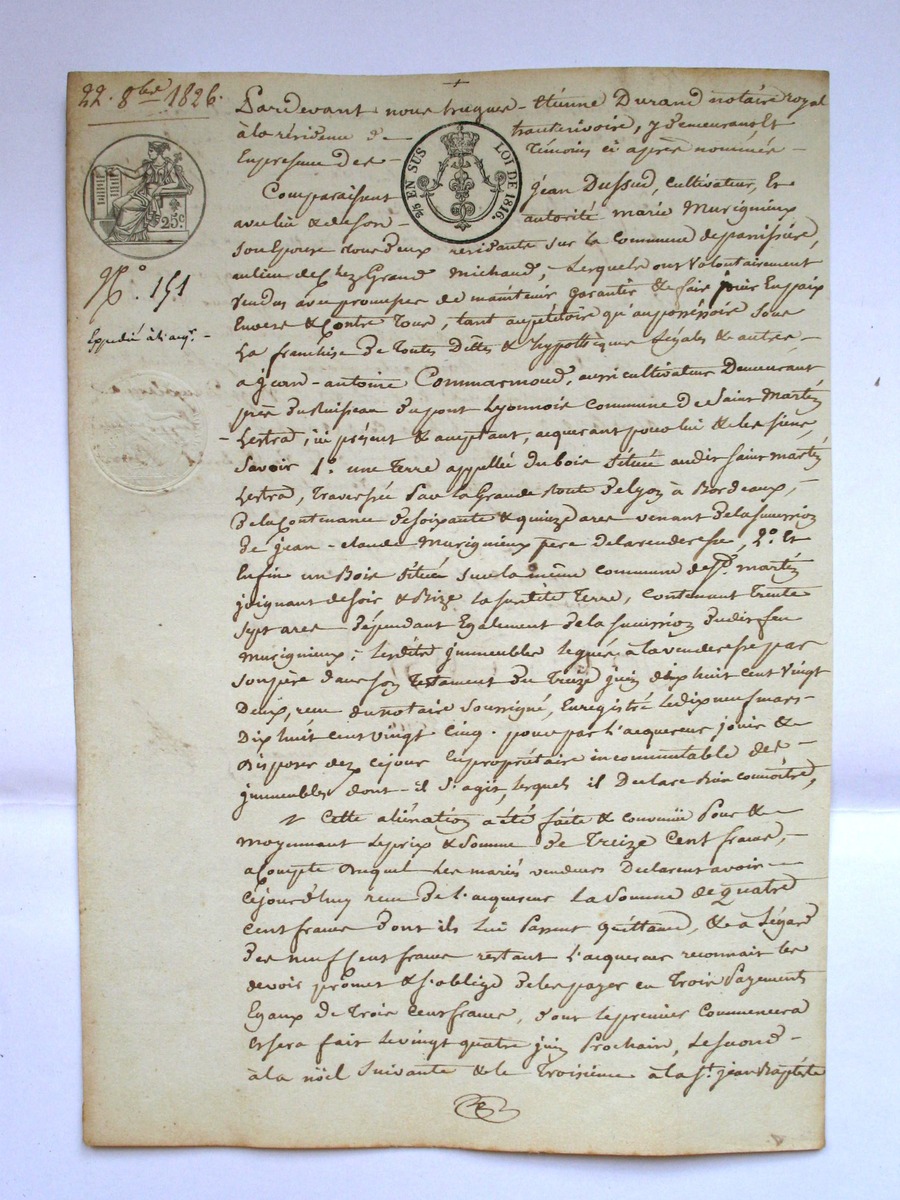 22. 8bre 1826.
Pardevant nous hugues-étienne Durand notaire royal
à la résidence de trauterivoire, y demeurant Et
En presence des Témoins ci après nommés -
25 EN SUS LOI DE 1816
25c.
Comparaissent jean Dussud, cultivateur, Et
avec lui & de son autorité marie Murigneux
son Epouse tous deux résidants sur la commune de panissière,
au lieu de chez Grand Michaud, Lesquels ont Volontairement
N.º 151
Vendu avec promesse de maintenir garantir & faire jouir En paix
Envers & Contre Tous, tant au pétitoire qu'au possessoire sous
Expedié à l'acqr. -
La franchise de toutes Dettes & hypothèques Légales & autres -
a jean-antoine Commarmond, aussi cultivateur Demeurant
près du Ruisseau du pont Lyonnois commune de Saint Martin
- Lestrad, ici présent & acceptant, acquerant pour lui & les siens,
Savoir 1.º une Terre appellée du bois Située audit Saint martin
Lestrad, Traversée par la Grande Route de lyon à Bordeaux, -
De la Contenance de soixante & quinze ares venant de la succession
de jean-claude Murigneux père de la venderesse, 2.º Et
Enfin un Bois Situé sur la même commune de St. martin
joignant de soir & Bize la susdite Terre, contenant Trente
Sept ares Dépendant Egalement de la succession dudit feu
Murigneux; Lesdits jmmeubles légués à la venderesse par
son père dans son Testament du Treize juin dix huit cent Vingt
Deux, reçu du notaire soussigné, Enregistré le dix neuf mars
Dix huit cent vingt Cinq. pour par l'acquereur jouir &
disposer dez cejour En propriétaire incommutable des -
jmmeubles dont-il s'agit, lesquels il Declare Bien connoître,
Cette aliénation a été faite & convenüe Pour &
moyennant le prix & Somme de Treize Cent francs, -
a Compte duquel Les mariés vendeurs Declarent avoir -
Cejourd'huy reçu de l'acquereur la Somme de quatre
Cent francs dont ils lui Passent quittance, & a l'égard
des neuf Cent francs restant l'acquereur reconnait les
devoir promet & s'oblige de les payer en Trois Payements
Egaux de Trois Cent francs, dont le premier Commencera
Et sera fait le vingt quatre juin Prochain, Le second -
à la nöel Suivante & le Troisième à la St. jean Baptiste